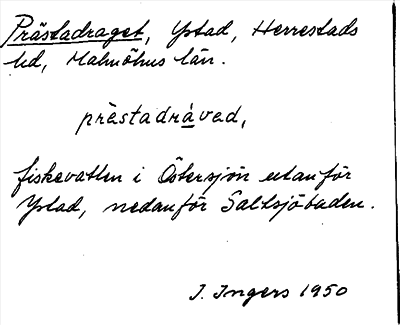 Prästadraget, Ystad, Herrestads
hd, Malmöhus län.
prèstadráved,
fiskevatten i Östersjön utanför
Ystad, nedanför Saltsjöbaden.
I. Ingers 1950